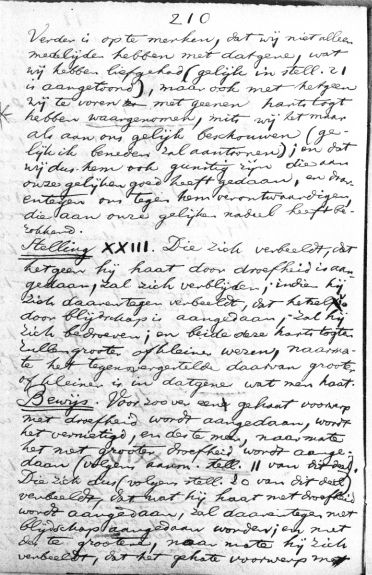 210
Verder is op te merken, dat wij niet alleen
medelijden hebben met datgene, wat
wij hebben liefgehad (gelijk in stell. 21
is aangetoond), maar ook met hetgeen
wij te voren met geenen hartstogt
hebben waargenomen, mits wij het maar
als aan ons gelijk beschouwen (ge-
lijk ik beneden zal aantoonen); en dat
wij dus hem ook gunstig zijn die aan
onze gelijken goed heeft gedaan, en daar-
entegen ons tegen hem verontwaardigen,
die aan onze gelijken nadeel heeft be-
rokkend.
Stelling XXIII. Die zich verbeeldt, dat
hetgeen hij haat door droefheid is aan-
gedaan, zal zich verblijden; indien hij
zich daarentegen verbeeldt, dat hetzelfde
door blijdschap is aangedaan, zal hij
zich bedroeven; en beide deze hartstogten
zullen grooter of kleiner wezen, naarma-
te het tegenovergestelde daarvan grooter
of kleiner is in datgene wat men haat.
Bewijs. Voor zoo ver een gehaat voorwerp
met droefheid wordt aangedaan, wordt
het vernietigd, en des te meer, naarmate
het met grooter droefheid wordt aange-
daan (volgens aanm. stell. 11 van dit deel).
Die zich dus (volgens stell. 20 van dit deel)
verbeeldt, dat wat hij haat met droefheid
wordt aangedaan, zal daarentegen met
blijdschap aangedaan worden; en met
des te grootere, naar mate hij zich
verbeeldt, dat het gehate voorwerp met